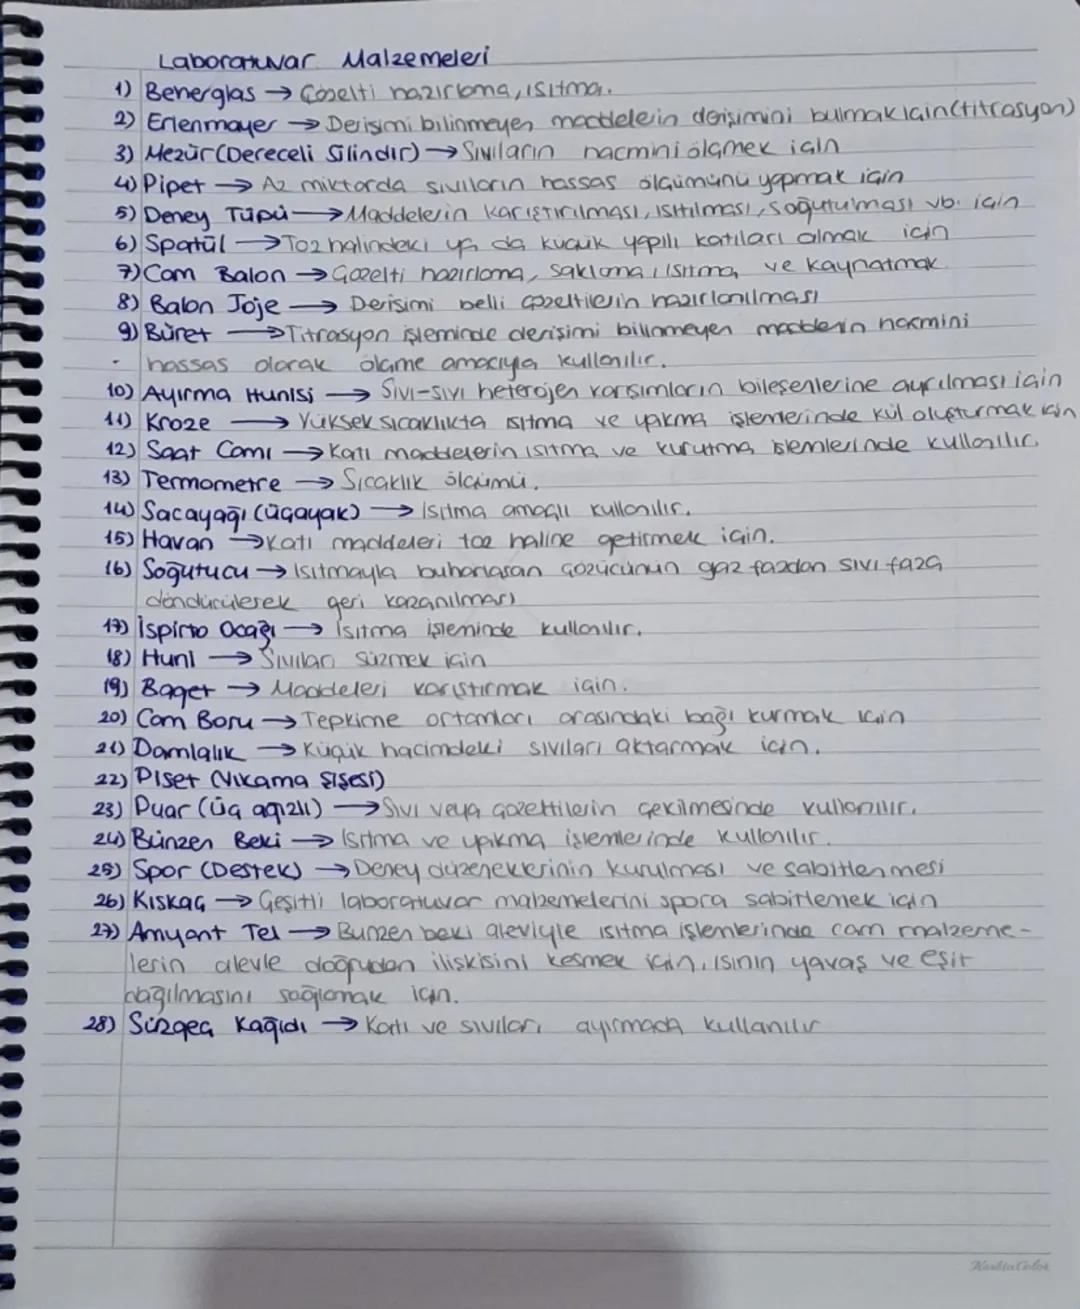 Laboratuvar Malzemeleri
1) Benerglas → Çözelti hazırlama, ısıtma.
2) Erlenmayer → Derişimi bilinmeyen maddelerin derişimini bulmak için (titrasyon)
3) Mezür (Dereceli Silindir) → Sıvıların hacmini ölçmek için
4) Pipet → Az miktarda sıvıların hassas ölçümünü yapmak için
5) Deney Tüpü → Maddelerin karıştırılması, ısıtılması, soğutulması vb. için
6) Spatül → Toz halindeki ya da küçük yapılı katıları almak için
7) Cam Balon → Çözelti hazırlama, saklama, ısıtma ve kaynatmak
8) Balon Joje → Derişimi belli çözeltilerin hazırlanılması
9) Büret → Titrasyon işleminde derişimi bilinmeyen maddenin hacmini
hassas olarak ölçme amacıyla kullanılır.
10) Ayırma Hunisi → Sıvı-sıvı heterojen karışımların bileşenlerine ayrılması için
11) Kroze → Yüksek sıcaklıkta ısıtma ve yakma işlemlerinde kül oluşturmak için
12) Saat Camı → Katı maddelerin ısıtma ve kurutma işlemlerinde kullanılır.
13) Termometre → Sıcaklık ölçümü.
14) Sacayağı (üçayak) → Isıtma amaçlı kullanılır.
15) Havan → Katı maddeleri toz haline getirmek için.
16) Soğutucu → Isıtmayla buharlaşan çözücünün gaz fazdan sıvı faza
döndürülerek geri kazanılması
17) İspirto Ocağı → Isıtma işleminde kullanılır.
18) Huni → Sıvıları süzmek için
19) Baget → Maddeleri karıştırmak için.
20) Cam Boru → Tepkime ortamları arasındaki bağı kurmak için
21) Damlalık → Küçük hacimdeki sıvıları aktarmak için.
22) Piset (Yıkama Şişesi)
23) Puar (üç ağızlı) → Sıvı veya çözeltilerin çekilmesinde kullanılır.
24) Bünzen Beki → Isıtma ve yakma işlemlerinde kullanılır.
25) Spor (Destek) → Deney düzeneklerinin kurulması ve sabitlenmesi
26) Kıskaç → Çeşitli laboratuvar malzemelerini spora sabitlemek için
27) Amyant Tel → Bunzen beki aleviyle ısıtma işlemlerinde cam malzeme-
lerin alevle doğrudan ilişkisini kesmek için, ısının yavaş ve eşit
dağılmasını sağlamak için.
28) Süzgeç Kağıdı → Katı ve sıvıları ayırmada kullanılır